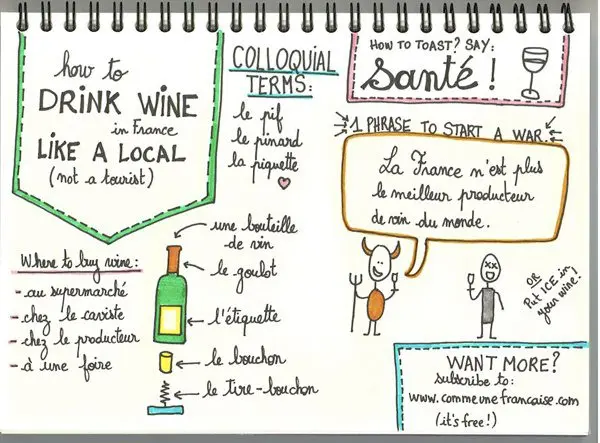 how to
DRINK WINE
in France
LIKE A LOCAL
(not a tourist)
COLLOQUIAL
TERMS:
le pif
le pinard
la piquette
HOW TO TOAST? SAY:
santé !
1 PHRASE TO START A WAR:
La France n'est plus
le meilleur producteur
de vin du monde.
OR
Put ICE in
your wine!
Where to buy wine:
- au supermarché
- chez le caviste
- chez le producteur
- à une foire
une bouteille
de vin
le goulot
l'étiquette
le bouchon
le tire-bouchon
WANT MORE?
subscribe to:
www.commeunefrancaise.com
(it's free!)